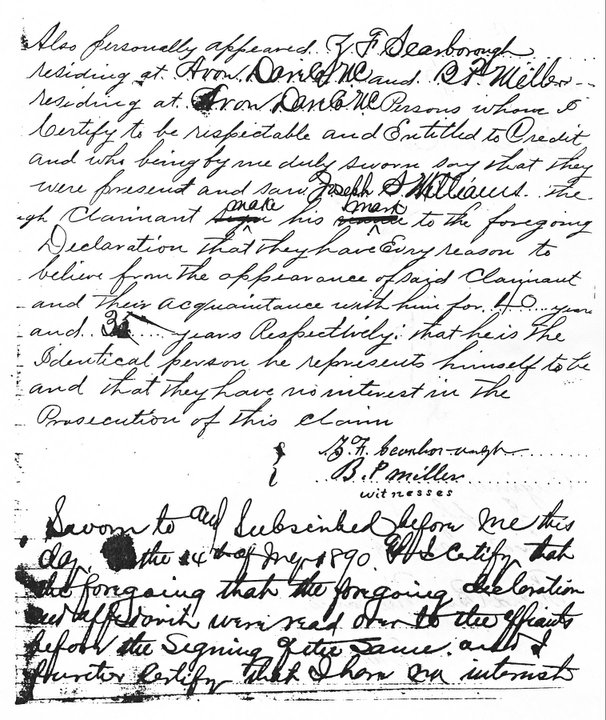 Also personally appeared Z F Scarborough
residing at Avon Dare Co NC and B P Miller
residing at Avon Dare Co NC Persons whom I
Certify to be respectable and Entitled to Credit
and who being by me duly sworn say that they
were present and saw Joseph S Williams the
make mark
Claimant his to the foregoing
Declaration that they have Evry reason to
believe from the appearance of said Claimant
and their acquaintance with him for 40 years
and years Respectively: that he is the
Identical person he represents himself to be
and that they have no interest in the
Prosecution of this claim
Z. F.
B. P Miller
witnesses
Sworn to and Subscribed before me this
day the 14th of 1890 I Certify that
the foregoing that the foregoing declaration
and affidavit were read over to the affiants
before the Signing of the Same. and I
further Certify that I have no interest